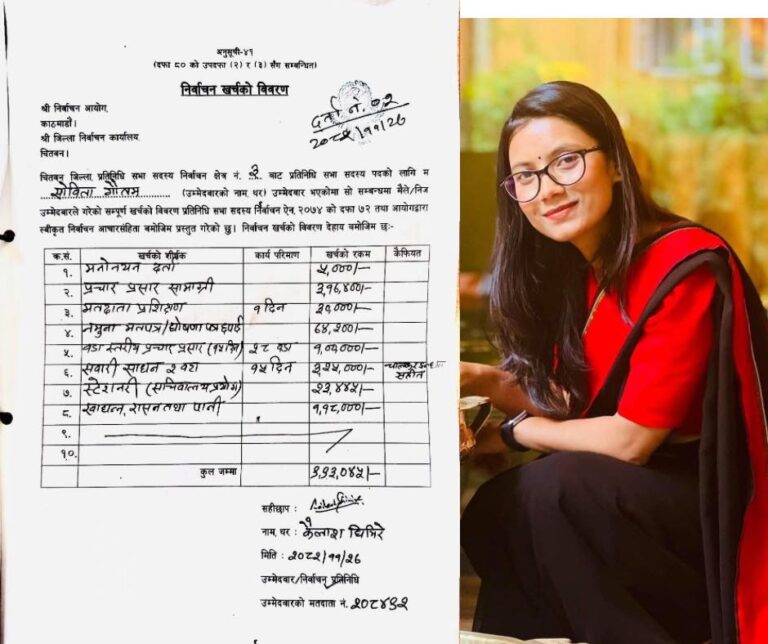 अनुसूची-४१
(दफा ८० को उपदफा (२) र (३) सँग सम्बन्धित)
निर्वाचन खर्चको विवरण
श्री निर्वाचन आयोग,
काठमाडौं।
दर्ता नं. ०२
२०८२/११/२६
श्री जिल्ला निर्वाचन कार्यालय,
चितवन।
चितवन जिल्ला, प्रतिनिधि सभा सदस्य निर्वाचन क्षेत्र नं. ३ बाट प्रतिनिधि सभा सदस्य पदको लागि म
सोविता गौतम (उम्मेदवारको नाम, थर) उम्मेदवार भएकोमा सो सम्बन्धमा मैले/निज
उम्मेदवारले गरेको सम्पूर्ण खर्चको विवरण प्रतिनिधि सभा सदस्य निर्वाचन ऐन, २०७४ को दफा ७२ तथा आयोगद्वारा
स्वीकृत निर्वाचन आचारसंहिता बमोजिम प्रस्तुत गरेको छु। निर्वाचन खर्चको विवरण देहाय बमोजिम छः-
क्र.सं. खर्चको शीर्षक कार्य परिमाण खर्चको रकम कैफियत
१. मनोनयन दर्ता ५,०००/-
२. प्रचार प्रसार सामाग्री ३,१६,४००/-
३. मतदाता प्रशिक्षण १ दिन
४. नमुना मतपत्र/घोषणा पत्र छपाई ६४,२००/-
५. वडा स्तरीय प्रचार प्रसार (१५ दिन) २८ वडा
६. सवारी साधन २ वटा १५ दिन सहित
७. स्टेशनरी (सचिवालय प्रयोग)
८. खाद्यान्न, रासन तथा पानी १,१८,०००/-
९.
१०.
कुल जम्मा
सहीछाप :
नाम, थर : कैलाश घिमिरे
मिति : २०८२/११/२६
उम्मेदवार/निर्वाचन प्रतिनिधि
उम्मेदवारको मतदाता नं.